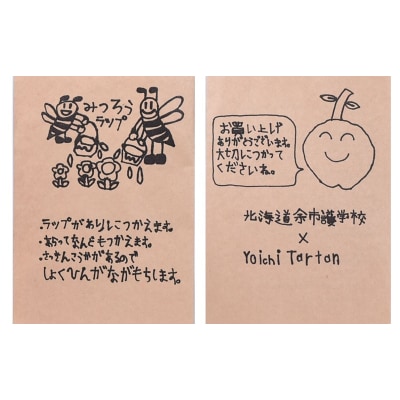 みつろう
ラップ
・ラップがわりにつかえます。
・あらってなんどもつかえます。
・さっきんこうかがあるので
しょくひんがながもちします。
お買い上げ
ありがとうございます。
大切につかって
くださいね。
北海道余市養護学校
×
Yoichi Tartan